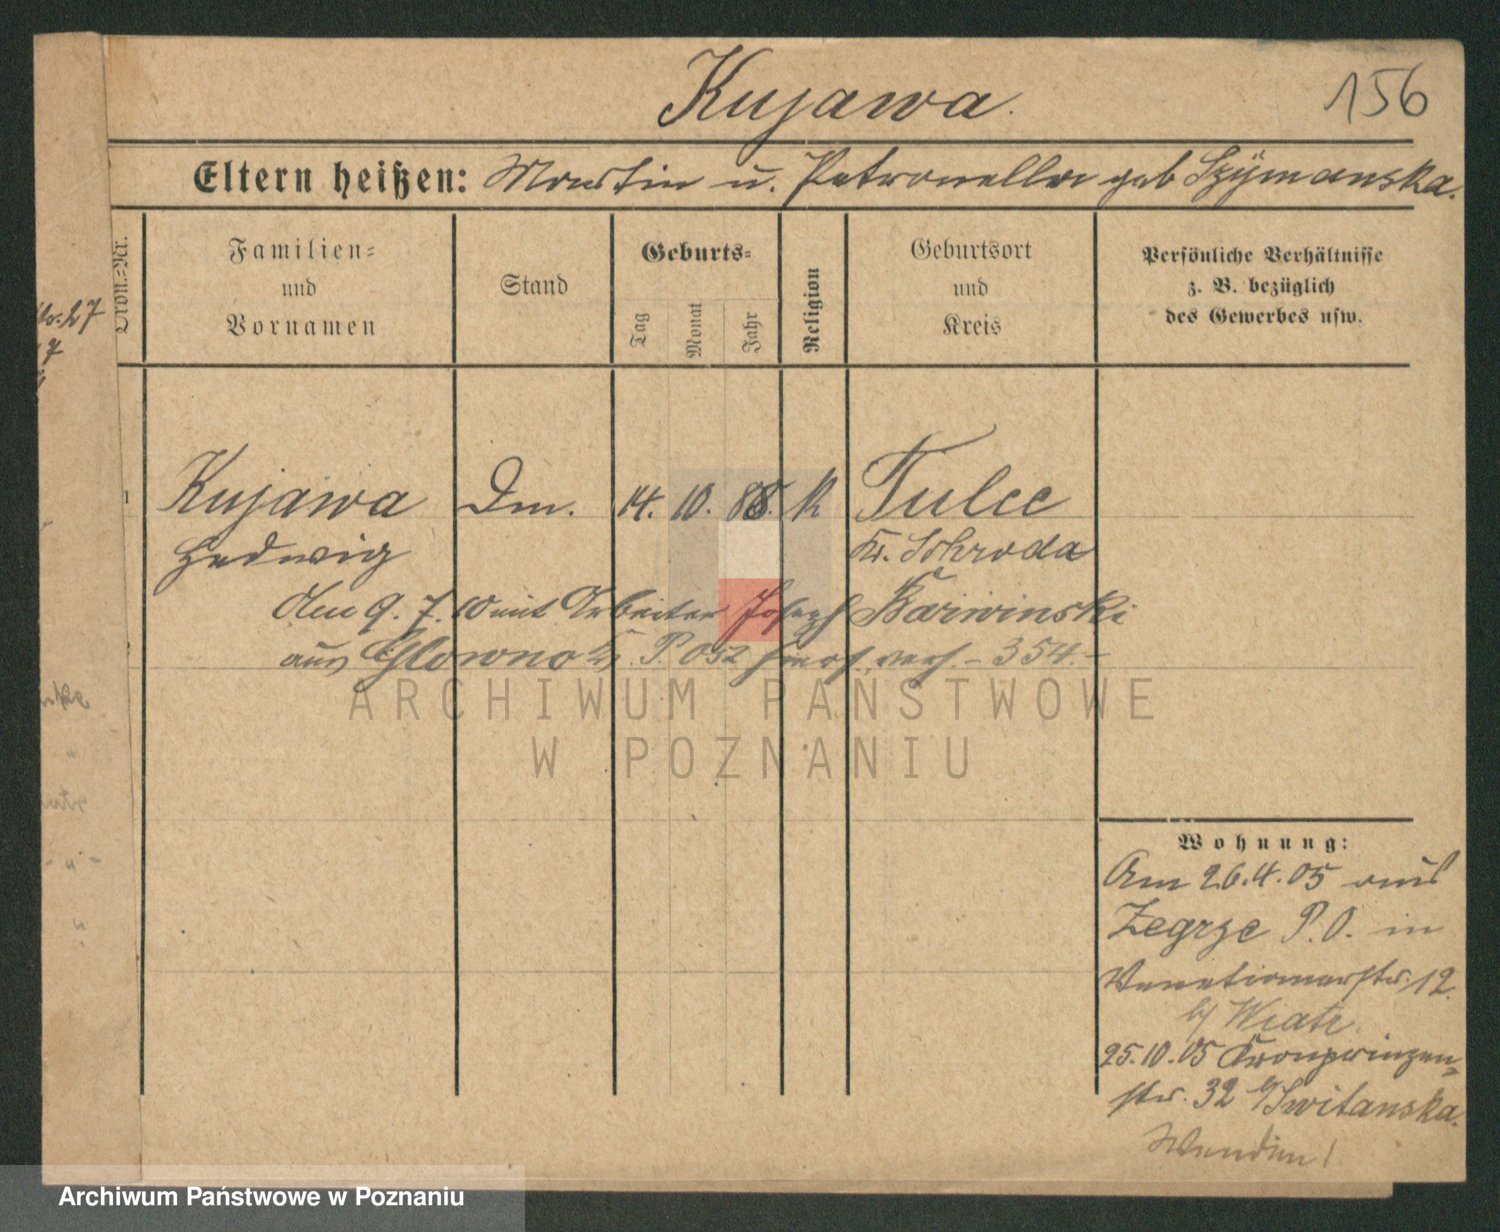 Kujawa.
156
Eltern heißen: Martin u. Petronella geb Szÿmanska.
Ordn.=Nr.
Familien=
und
Vornamen
Stand
Geburts=
Tag
Monat
Jahr
Religion
Geburtsort
und
Kreis
Persönliche Verhältnisse
z. B. bezüglich
des Gewerbes usw.
27
7
1
Kujawa
Hedwig
Dm.
14. 10. 88.
k
Tulce
Kr. Schroda
den 9. 7. 10 mit Arbeiter Joseph Karwinski
aus Glowno Kr. P. O verh. - 354. -
Wohnung:
Am 26.4.05 aus
Zegrze P.O. in
Venetianerstr. 12.
b/ Wiatr.
25.10.05 Kronprinzen=
str. 32 b/ Switanska.
Wenden!
ARCHIWUM PAŃSTWOWE
W POZNANIU
Archiwum Państwowe w Poznaniu